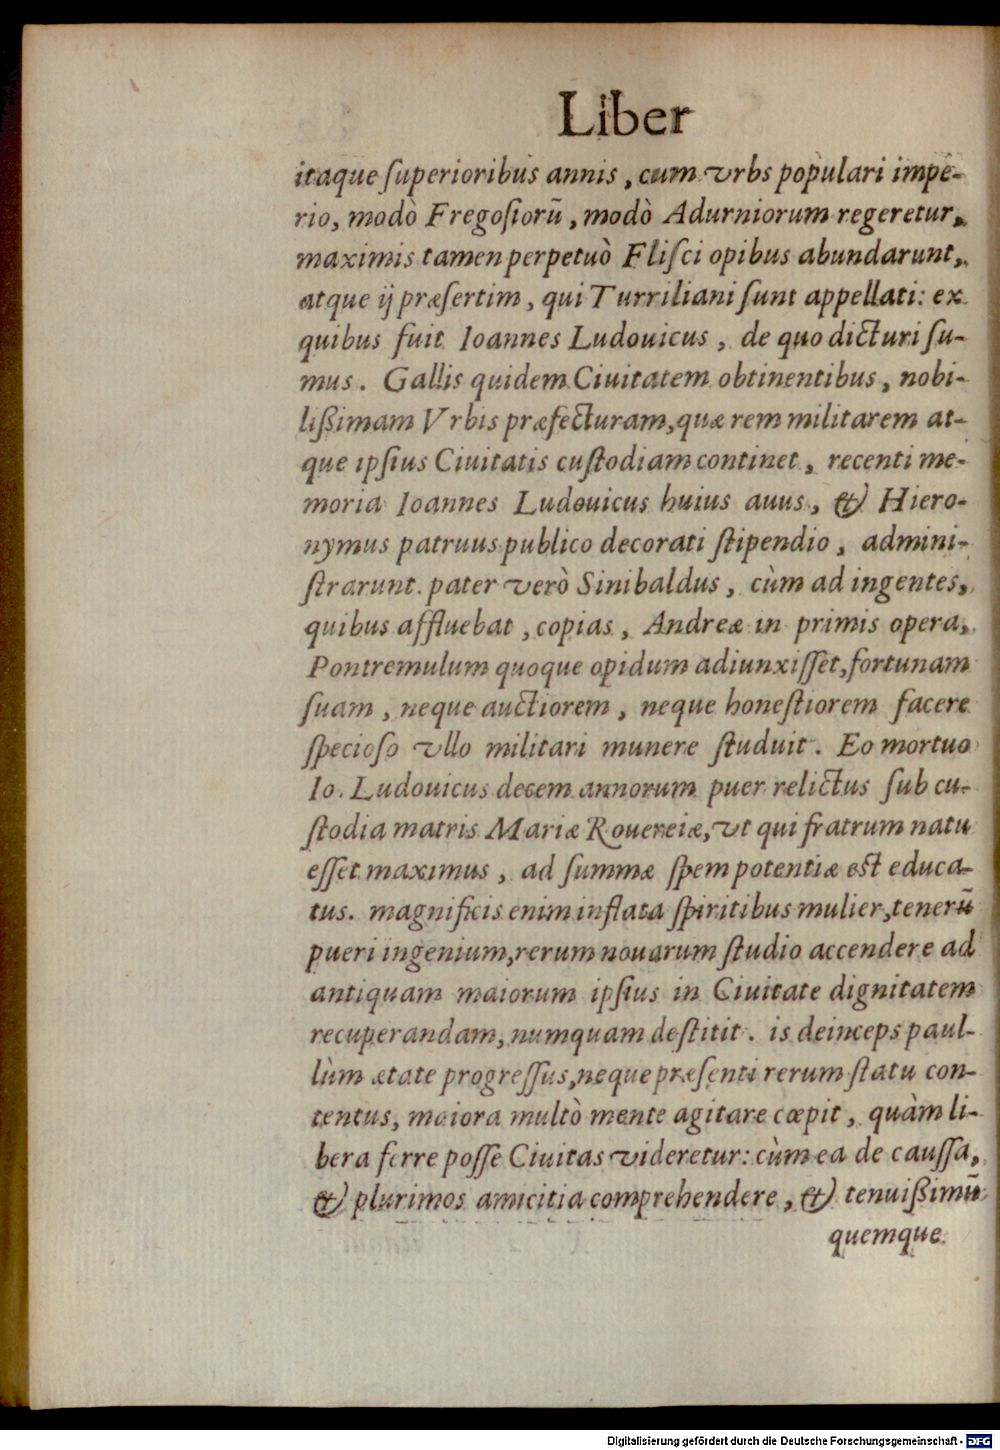 Liber
itaque ſuperioribus annis, cum vrbs populari impe-
rio, modò Fregoſiorũ, modò Adurniorum regeretur,
maximis tamen perpetuò Fliſci opibus abundarunt,
atque ij præſertim, qui Turriliani ſunt appellati: ex
quibus fuit Ioannes Ludouicus, de quo dicturi ſu-
mus. Gallis quidem Ciuitatem obtinentibus, nobi-
lißimam Vrbis præfecturam, quæ rem militarem at-
que ipſius Ciuitatis cuſtodiam continet, recenti me-
moria Ioannes Ludouicus huius auus, & Hiero-
nymus patruus publico decorati ſtipendio, admini-
ſtrarunt. pater verò Sinibaldus, cùm ad ingentes,
quibus affluebat, copias, Andreæ in primis opera,
Pontremulum quoque opidum adiunxiſſet, fortunam
ſuam, neque auctiorem, neque honeſtiorem facere
ſpecioſo vllo militari munere ſtuduit. Eo mortuo
Io. Ludouicus decem annorum puer relictus ſub cu-
ſtodia matris Mariæ Rouereiæ, vt qui fratrum natu
eſſet maximus, ad ſummæ ſpem potentiæ eſt educa-
tus. magnificis enim inflata ſpiritibus mulier, tenerũ
pueri ingenium, rerum nouarum ſtudio accendere ad
antiquam maiorum ipſius in Ciuitate dignitatem
recuperandam, numquam deſtitit. is deinceps paul-
lùm ætate progreſſus, neque præſenti rerum ſtatu con-
tentus, maiora multò mente agitare cœpit, quàm li-
bera ferre poſſe Ciuitas videretur: cùm ea de cauſſa,
& plurimos amicitia comprehendere, & tenuißimũ
quemque
Digitalisierung gefördert durch die Deutsche Forschungsgemeinschaft - DFG